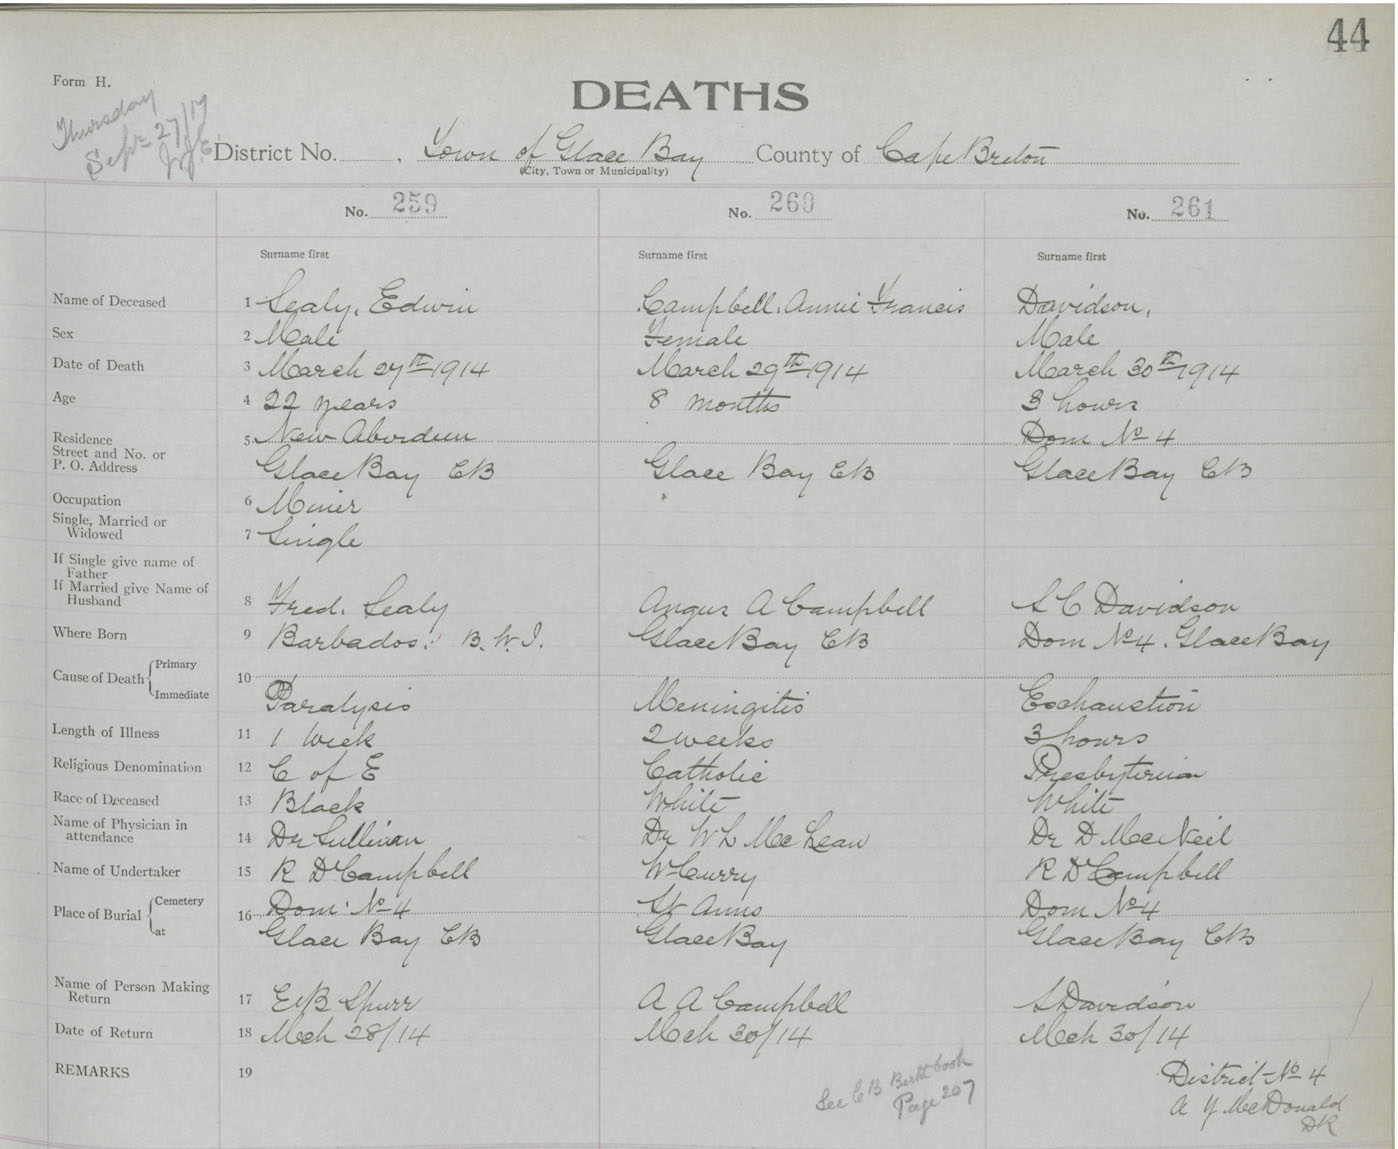 44
Form H.
DEATHS
Thursday
Sept 27/17
District No. . Town of Glace Bay County of Cape Breton
(City, Town or Municipality)
No. 259 No. 260 No. 261
Surname first Surname first Surname first
Name of Deceased 1 Sealy, Edwin Campbell, Annie Francis Davidson,
Sex 2 Male Female Male
Date of Death 3 March 27th 1914 March 29th 1914 March 30th 1914
Age 4 22 years 8 months 3 hours
Residence 5 New Aberdeen Dom No 4
Street and No. or
P. O. Address Glace Bay CB Glace Bay CB Glace Bay CB
Occupation 6 Miner
Single, Married or
Widowed 7 Single
If Single give name of
Father
If Married give Name of
Husband 8 Fred. Sealy Angus A Campbell S C Davidson
Where Born 9 Barbados. B.W.I. Glace Bay CB Dom No 4. Glace Bay
Cause of Death Primary 10
Immediate Paralysis Meningitis Exhaustion
Length of Illness 11 1 Week 2 weeks 3 hours
Religious Denomination 12 C of E Catholic Presbyterian
Race of Deceased 13 Black White White
Name of Physician in
attendance 14 Dr Sullivan Dr W L MacLean Dr D MacNeil
Name of Undertaker 15 R D Campbell W Curry R D Campbell
Place of Burial Cemetery 16 Dom. No 4 St Anns Dom No 4
at Glace Bay CB Glace Bay Glace Bay CB
Name of Person Making
Return 17 E B Spurr A A Campbell S Davidson
Date of Return 18 Mch 28/14 Mch 30/14 Mch 30/14
REMARKS 19
See C B Birth book
Page 207
District No 4
A Y MacDonald
DR